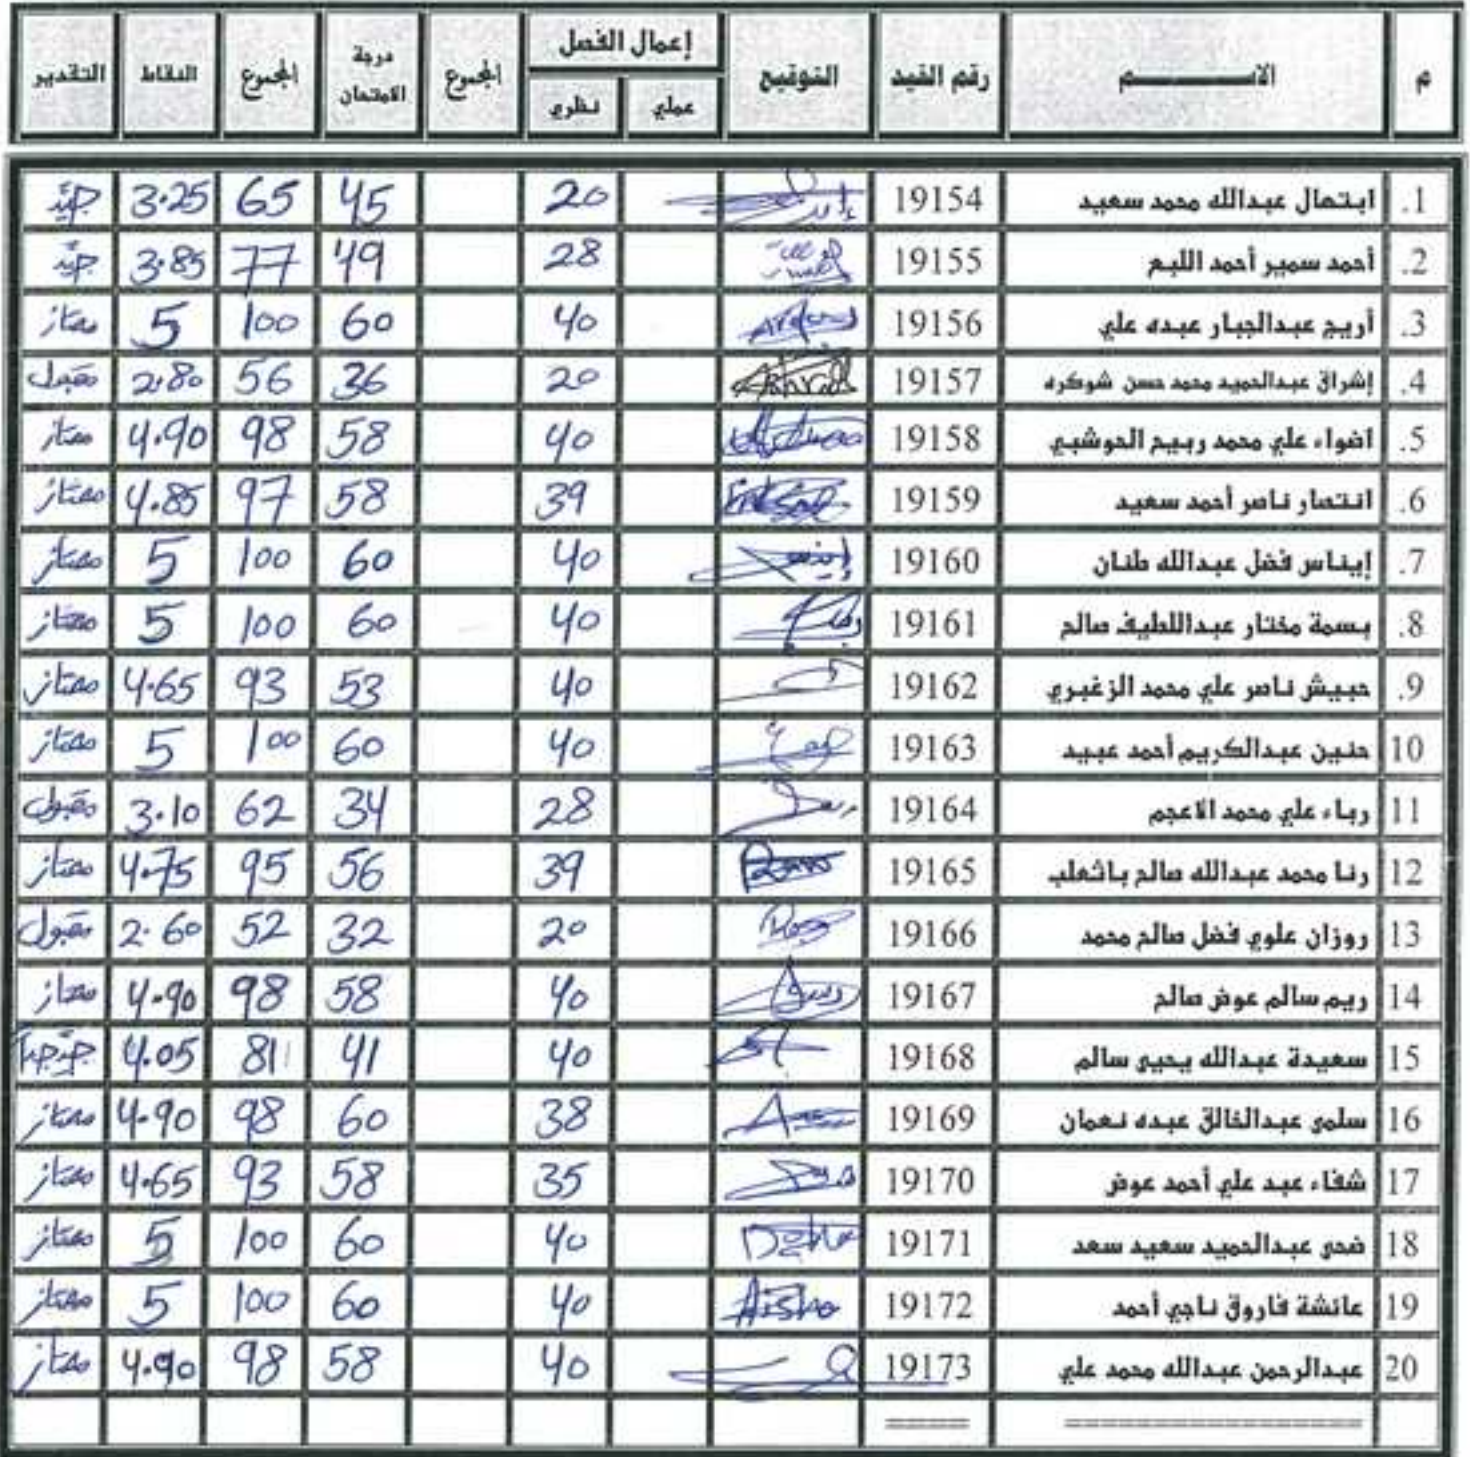 م الاســـــــم رقم القيد التوقيع إعمال الفصل المجموع درجة الامتحان المجموع النقاط التقدير
عملي نظري
.1 ابتهال عبدالله محمد سعيد 19154 20 45 65 3.25 جيّد
.2 أحمد سمير أحمد اللبع 19155 28 49 77 3.85 جيّد
.3 أريج عبدالجبار عبده علي 19156 40 60 100 5 ممتاز
.4 إشراق عبدالحميد محمد حسن شوكره 19157 20 36 56 2.80 مقبول
.5 اضواء علي محمد ربيع الحوشبي 19158 40 58 98 4.90 ممتاز
.6 انتصار ناصر أحمد سعيد 19159 39 58 97 4.85 ممتاز
.7 إيناس فضل عبدالله طنان 19160 40 60 100 5 ممتاز
.8 بسمة مختار عبداللطيف صالح 19161 40 60 100 5 ممتاز
.9 حبيش ناصر علي محمد الزغبري 19162 40 53 93 4.65 ممتاز
10 حنين عبدالكريم أحمد عبيد 19163 40 60 100 5 ممتاز
11 رباء علي محمد الاعجم 19164 28 34 62 3.10 مقبول
12 رنا محمد عبدالله صالح باثعلب 19165 39 56 95 4.75 ممتاز
13 روزان علوي فضل صالح محمد 19166 20 32 52 2.60 مقبول
14 ريم سالم عوض صالح 19167 40 58 98 4.90 ممتاز
15 سعيدة عبدالله يحيى سالم 19168 40 41 81 4.05 جيّد جداً
16 سلمى عبدالخالق عبده نعمان 19169 38 60 98 4.90 ممتاز
17 شفاء عبد علي أحمد عوض 19170 35 58 93 4.65 ممتاز
18 ضحى عبدالحميد سعيد سعد 19171 40 60 100 5 ممتاز
19 عائشة فاروق ناجي أحمد 19172 Aisha 40 60 100 5 ممتاز
20 عبدالرحمن عبدالله محمد علي 19173 40 58 98 4.90 ممتاز